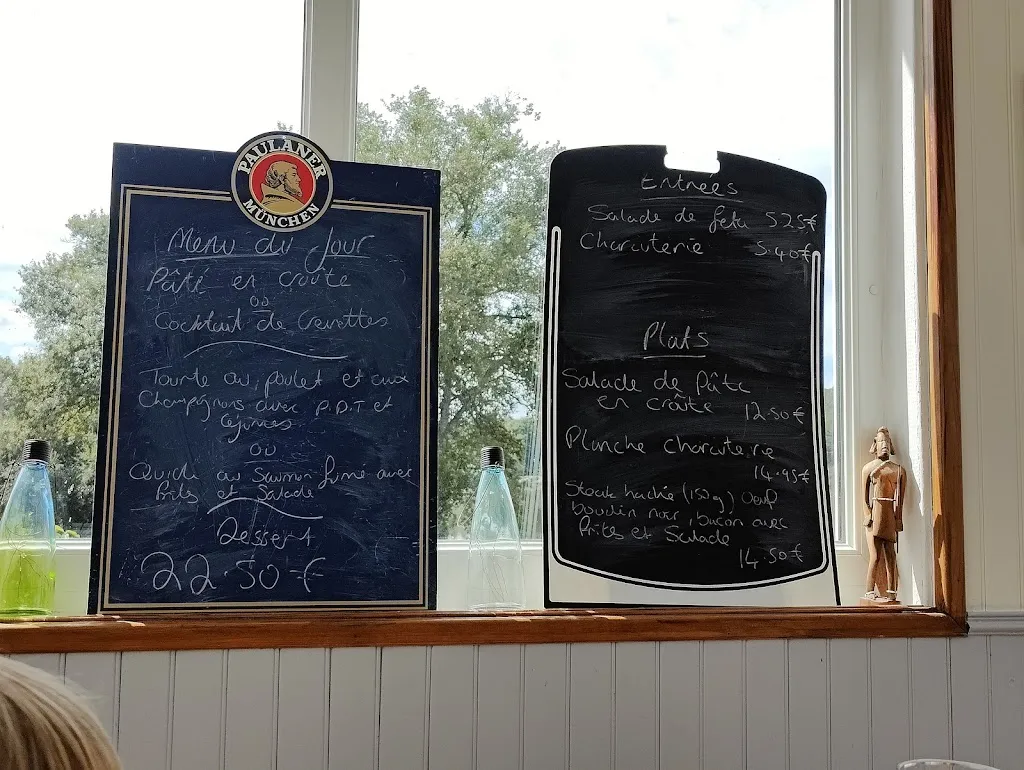 PAULANER
MÜNCHEN
Menu du Jour
Pâté en croûte
ou
Cocktail de Crevettes
Tourte au poulet et aux
Champignons avec P.D.T et
légumes
ou
Quich au Saumon fumé avec
frites et Salade
Dessert
22.50 €
Entrées
Salade de feta 5.25€
Charcuterie 5.40€
Plats
Salade de Pâté
en croûte 12.50€
Planche charcuterie
14.95€
Steak haché (150g) Oeuf
boudin noir, bacon avec
frites et Salade
14.50€